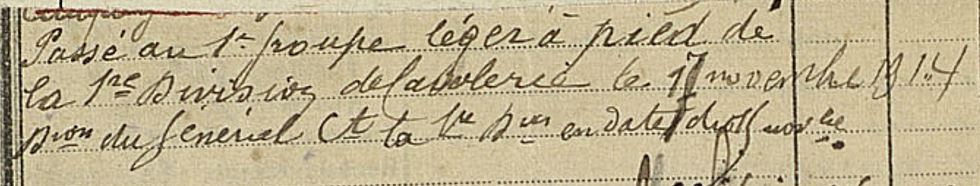 Passé au 1er groupe léger à pied de
la 1re Division de Cavalerie le 17 novembre 1914
Don du Général Ct la 1re Don en date du novbre